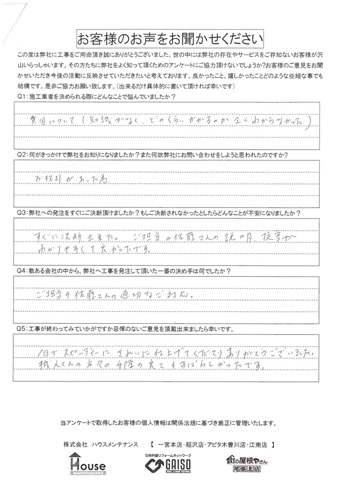 お客様のお声をお聞かせください
この度は弊社に工事をご用命頂き誠にありがとうございました。世の中には弊社の存在やサービスをご存知ないお客様が沢
山いらっしゃいます。その方たちに弊社をよく知って頂くためのアンケートにご協力頂けないでしょうか?お客様のご意見をお聞
かせいただき今後の活動に反映させていただきたいと考えております。良かったこと、嬉しかったことどのような些細な事でも
結構です。是非ご協力お願い致します。(出来るだけ具体的に書いて頂ければ幸いです)
Q1:施工業者を決められる際にどんなことで悩んでいましたか?
費用について(知識がなく、どのくらいかかるのか全くわからなかった)
Q2:何がきっかけで弊社をお知りになりましたか?また何故弊社にお問い合わせをしようと思われたのですか?
お校があった為
Q3:弊社への発注をすぐにご決断頂けましたか?もしご決断されなかったとしたらどんなことが不安になりましたか?
すぐに決断出来た。ご担当の佐藤さんの説明、提案が
わかりやすくて良かったです。
Q4:数ある会社の中から、弊社へ工事を発注して頂いた一番の決め手は何でしたか?
ご担当の佐藤さんの適切なご対応。
Q5:工事が終わってみていかがですか忌憚のないご意見を頂戴出来ましたら幸いです。
1日でスピーディーにきれいに仕上げてくださりありがとうございました。
職人さんの手際の良さもすばらしかったです。
当アンケートで取得したお客様の個人情報は関係法規に基づき厳正に管理いたします。
株式会社 ハウスメンテナンス 【 一宮本店・稲沢店・アピタ木曽川店・江南店 】
House
GAISO
街の屋根やさん
尾張北店